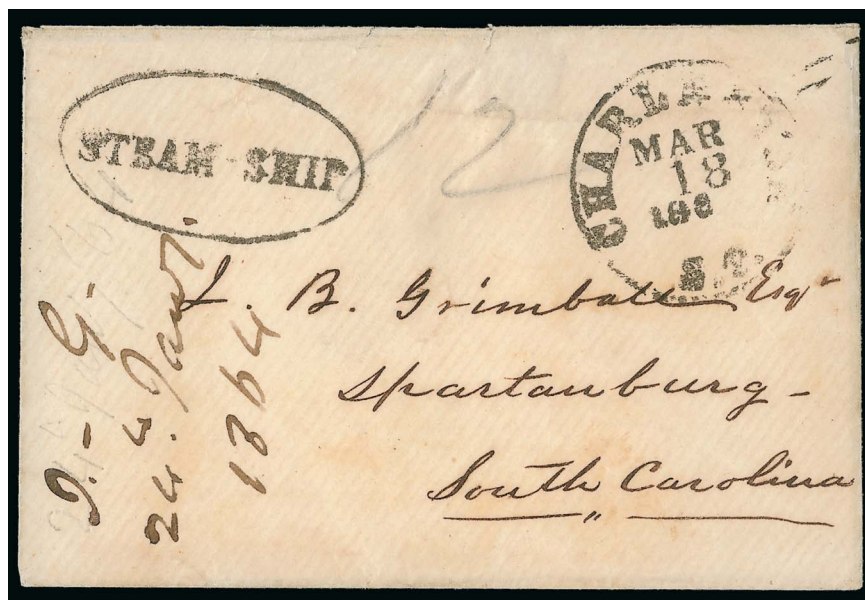 STEAM-SHIP
12
CHARLESTON
MAR
18
186
S.C.
J. B. Grimball Esqr
Spartanburg -
South Carolina
J. - G.
24. Jany.
1864